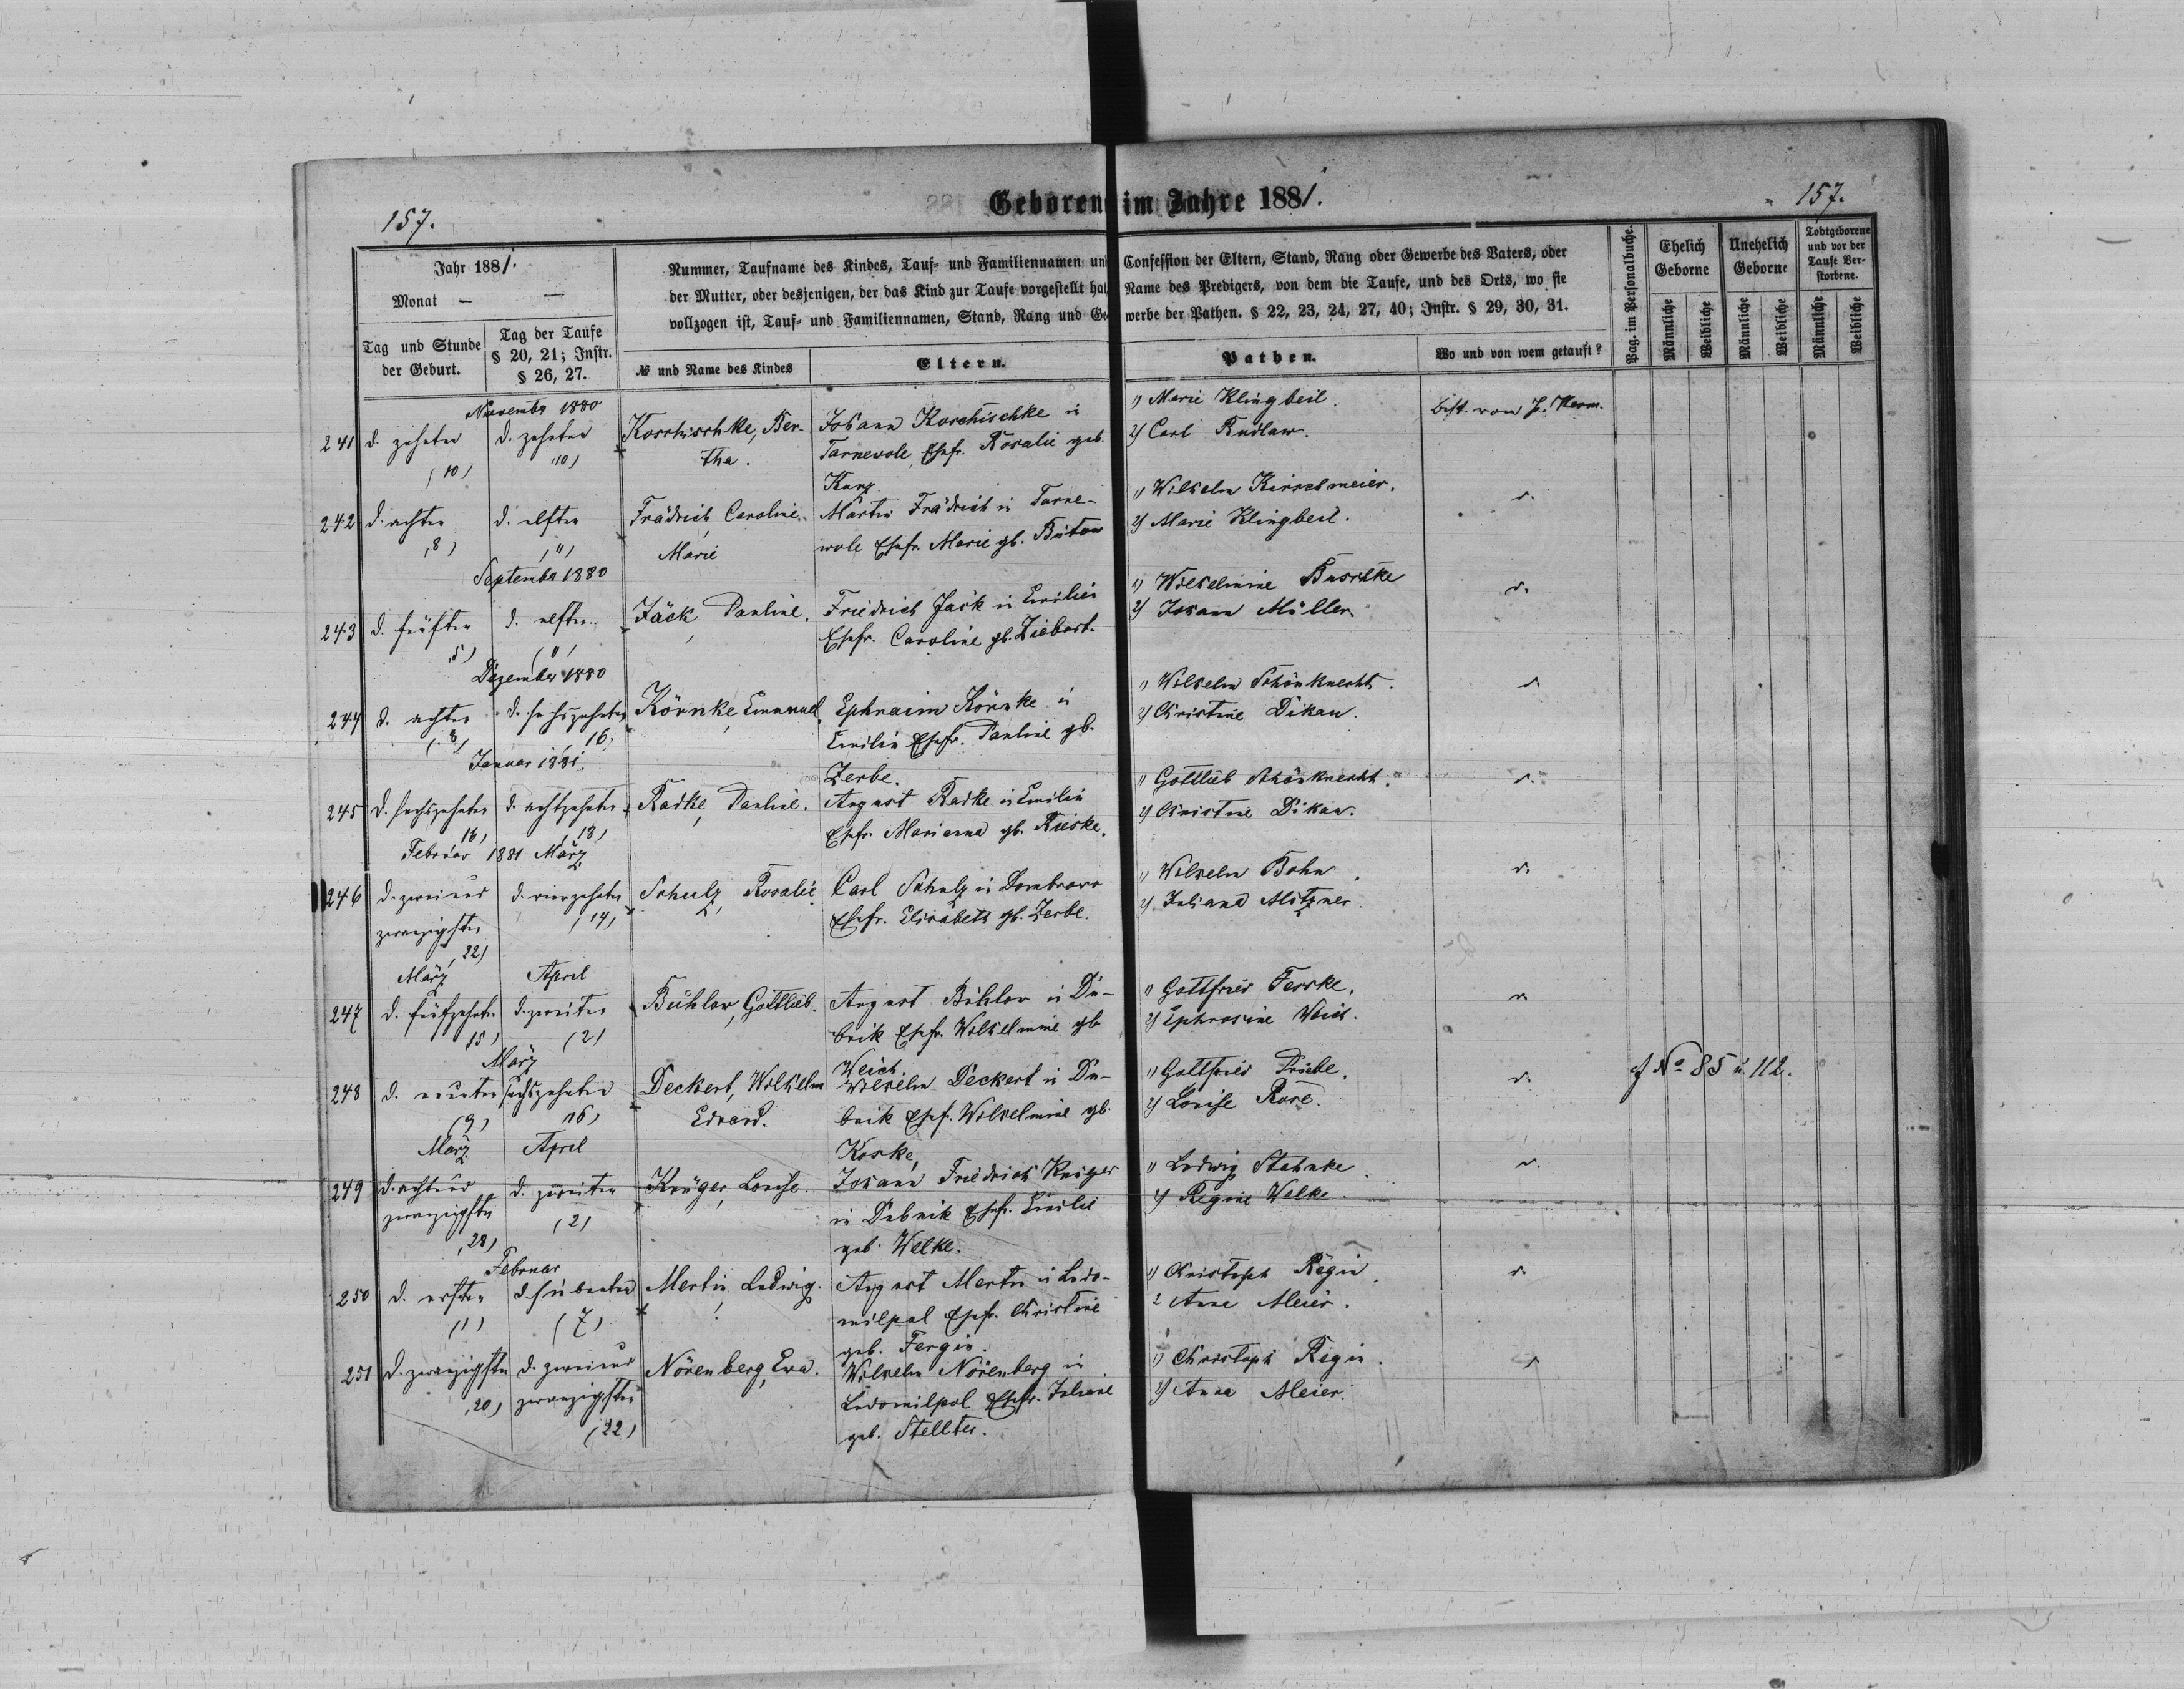 157.
Geboren im Jahre 1881.
157.
Jahr 1881.
Monat — —
Tag und Stunde der Geburt.
Tag der Taufe § 20, 21; Instr. § 26, 27.
Nummer, Taufname des Kindes, Tauf- und Familiennamen und Confession der Eltern, Stand, Rang oder Gewerbe des Vaters, oder
der Mutter, oder desjenigen, der das Kind zur Taufe vorgestellt hat, Name des Predigers, von dem die Taufe, und des Orts, wo sie
vollzogen ist, Tauf- und Familiennamen, Stand, Rang und Gewerbe der Pathen. § 22, 23, 24, 27, 40; Instr. § 29, 30, 31.
№ und Name des Kindes
Eltern.
Pathen.
Wo und von wem getauft?
Pag. im Personalbuche.
Ehelich Geborne
Unehelich Geborne
Todtgeborene und vor der Taufe Verstorbene.
Männliche
Weibliche
Männliche
Weibliche
Männliche
Weibliche
November 1880
241 d. zehnten (10)
d. zehnten (10)
Koschischke, Bertha.
Johann Koschischke in
Tarnewole, Ehefr. Rosalie geb.
Kunz
1) Marie Klingbeil.
2) Carl Rudlaw.
Best. von P.
242 d. achten (8)
d. elften (11)
Frädrich, Caroline
Marie
Martin Frädrich in Tarne-
wole Ehefr. Marie gb. Bütow
1) Wilhelm Kirschmeier.
2) Marie Klingbeil.
d.
September 1880
243 d. fünften (5)
d. elften (11)
Jäck, Pauline.
Friedrich Jäck in Emilin
Ehefr. Caroline gb. Ziebart.
1) Wilhelmine Buschke
2) Johann Müller.
d.
Dezember 1880
244 d. achten (8)
d. sechszehnten 16)
Körnke, Emanuel.
Ephraim Körnke in
Emilin Ehefr. Pauline gb.
Zerbe.
1) Wilhelm Schönknecht.
2) Christine Dikau.
d.
Januar 1881.
245 d. sechszehnten 16)
d. achtzehnten (18)
Radke, Pauline.
August Radke in Emilin
Ehefr. Marianna gb. Rieske.
1) Gottlieb Schönknecht.
2) Christine Dikau.
d.
Februar 1881 März
246 d. zweiund
zwanzigsten (22)
d. vierzehnten (14)
Schulz, Rosalie
Carl Schulz in Dombrowo
Ehefr. Elisabeth gb. Zerbe.
1) Wilhelm Bohn.
2) Juliane Mitzner
d.
März April
247 d. fünfzehnten 15)
d. zweiten (2)
Bühlow, Gottlieb.
August Bühlow in Du-
brik Ehefr. Wilhelmine gb
Weich.
1) Gottfried Feske.
2) Ephrosine Weich.
d.
März
248 d. neunten (9)
sechszehnten 16)
Deckert, Wilhelm
Eduard.
Wilhelm Deckert in Du-
brik Ehefr. Wilhelmine gb.
Koske,
1) Gottfried Priebe.
2) Louise Rose.
d.
No 85 u. 112.
März April
249 d. achtund
zwanzigsten (28)
d. zweiten (2)
Krüger, Louise.
Johann Friedrich Krüger
in Dubrik Ehefr. Emilie
geb. Welke.
1) Ludwig Stahnke
2) Regine Welke.
d.
Februar
250 d. ersten (1)
d. siebenten (7)
Mertin, Ludwig.
August Mertin in Ludo-
milpol Ehefr. Christine
geb. Fergin.
1) Christoph Regin
2 Anne Meier.
d.
251 d. zwanzigsten 20)
d. zweiund
zwanzigsten (22)
Nörenberg, Eva.
Wilhelm Nörenberg in
Ludomilpol Ehefr. Juliane
geb. Stellter.
1) Christoph Regin.
2) Anna Meier.
d.